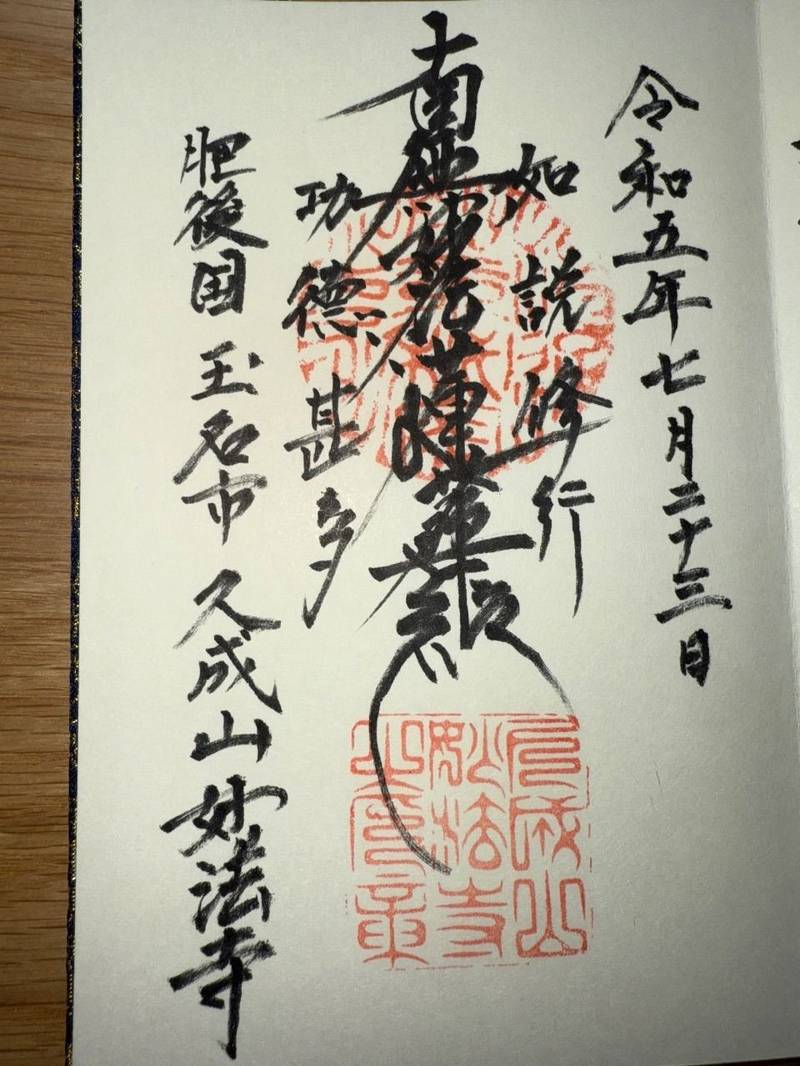 令和五年七月二十三日
如説修行
南無妙法蓮華経
功徳甚多
肥後国 玉名市 久成山 妙法寺
久成山
妙法寺
之寶章